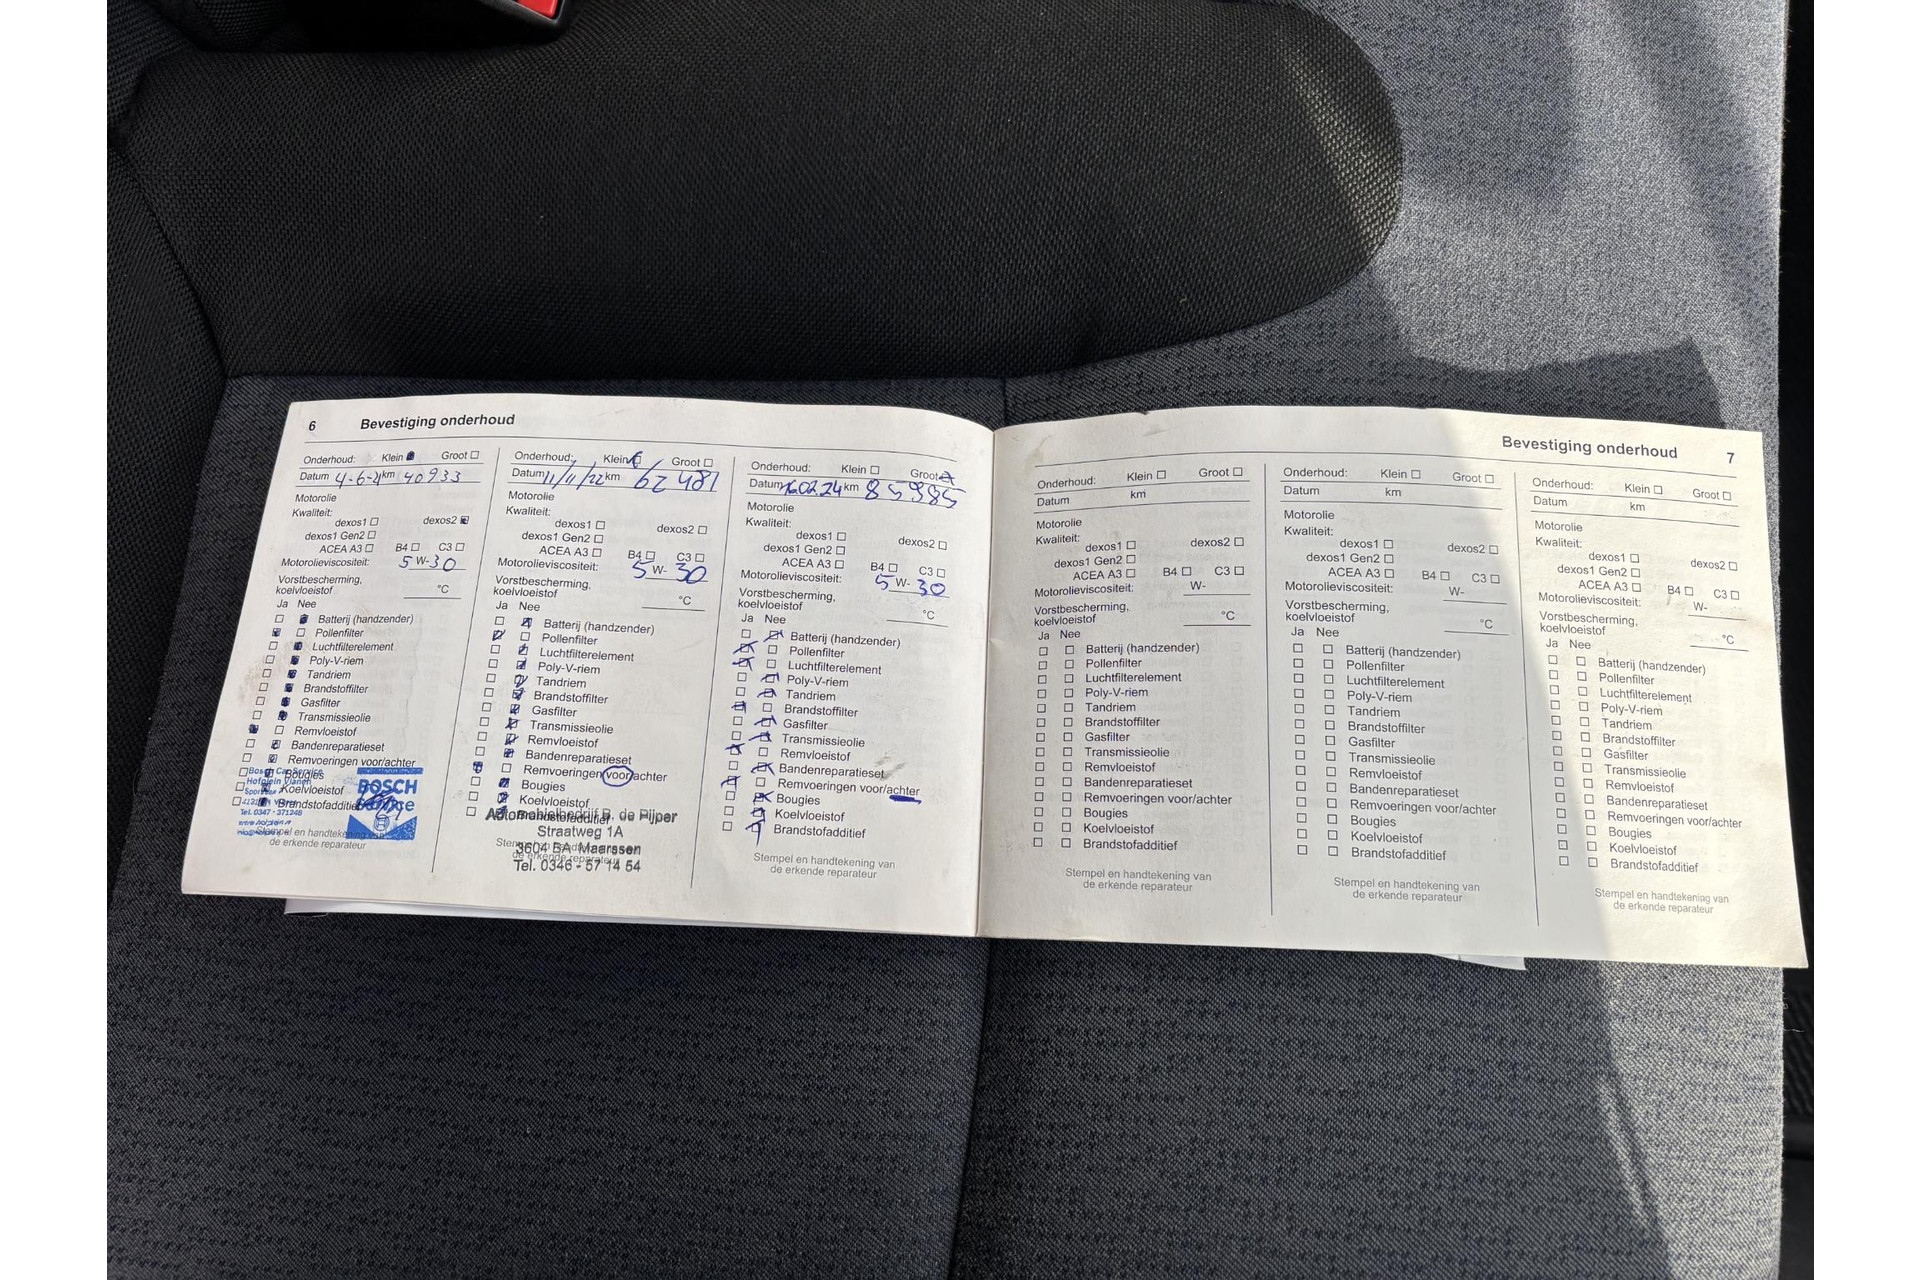 6 Bevestiging onderhoud
Onderhoud: Klein Groot
Datum 4-6-21 km 40933
Motorolie
Kwaliteit:
dexos1 dexos2
dexos1 Gen2
ACEA A3 B4 C3
Motorolieviscositeit: 5 W-30
Vorstbescherming,
koelvloeistof °C
Ja Nee
Batterij (handzender)
Pollenfilter
Luchtfilterelement
Poly-V-riem
Tandriem
Brandstoffilter
Gasfilter
Transmissieolie
Remvloeistof
Bandenreparatieset
Remvoeringen voor/achter
Bougies
Koelvloeistof
Brandstofadditief
Bosch Car Service
Hofplein Vianen
Tel. 0347 - 371248
BOSCH
Service
Stempel en handtekening van
de erkende reparateur
Onderhoud: Klein Groot
Datum 11/11/22 km 62 481
Motorolie
Kwaliteit:
dexos1 dexos2
dexos1 Gen2
ACEA A3 B4 C3
Motorolieviscositeit: 5 W- 30
Vorstbescherming,
koelvloeistof °C
Ja Nee
Batterij (handzender)
Pollenfilter
Luchtfilterelement
Poly-V-riem
Tandriem
Brandstoffilter
Gasfilter
Transmissieolie
Remvloeistof
Bandenreparatieset
Remvoeringen voor/achter
Bougies
Koelvloeistof
Brandstofadditief
Automobielbedrijf B. de Pijper
Straatweg 1A
3604 BA Maarssen
Tel. 0346 - 57 14 54
de erkende reparateur
Onderhoud: Klein Groot
Datum 16.02.24 km 85985
Motorolie
Kwaliteit:
dexos1 dexos2
dexos1 Gen2
ACEA A3 B4 C3
Motorolieviscositeit: 5 W- 30
Vorstbescherming,
koelvloeistof °C
Ja Nee
Batterij (handzender)
Pollenfilter
Luchtfilterelement
Poly-V-riem
Tandriem
Brandstoffilter
Gasfilter
Transmissieolie
Remvloeistof
Bandenreparatieset
Remvoeringen voor/achter
Bougies
Koelvloeistof
Brandstofadditief
Stempel en handtekening van
de erkende reparateur
Bevestiging onderhoud 7
Onderhoud: Klein Groot
Datum km
Motorolie
Kwaliteit:
dexos1 dexos2
dexos1 Gen2
ACEA A3 B4 C3
Motorolieviscositeit: W-
Vorstbescherming,
koelvloeistof °C
Ja Nee
Batterij (handzender)
Pollenfilter
Luchtfilterelement
Poly-V-riem
Tandriem
Brandstoffilter
Gasfilter
Transmissieolie
Remvloeistof
Bandenreparatieset
Remvoeringen voor/achter
Bougies
Koelvloeistof
Brandstofadditief
Stempel en handtekening van
de erkende reparateur
Onderhoud: Klein Groot
Datum km
Motorolie
Kwaliteit:
dexos1 dexos2
dexos1 Gen2
ACEA A3 B4 C3
Motorolieviscositeit: W-
Vorstbescherming,
koelvloeistof °C
Ja Nee
Batterij (handzender)
Pollenfilter
Luchtfilterelement
Poly-V-riem
Tandriem
Brandstoffilter
Gasfilter
Transmissieolie
Remvloeistof
Bandenreparatieset
Remvoeringen voor/achter
Bougies
Koelvloeistof
Brandstofadditief
Stempel en handtekening van
de erkende reparateur
Onderhoud: Klein Groot
Datum km
Motorolie
Kwaliteit:
dexos1 dexos2
dexos1 Gen2
ACEA A3 B4 C3
Motorolieviscositeit: W-
Vorstbescherming,
koelvloeistof °C
Ja Nee
Batterij (handzender)
Pollenfilter
Luchtfilterelement
Poly-V-riem
Tandriem
Brandstoffilter
Gasfilter
Transmissieolie
Remvloeistof
Bandenreparatieset
Remvoeringen voor/achter
Bougies
Koelvloeistof
Brandstofadditief
Stempel en handtekening van
de erkende reparateur